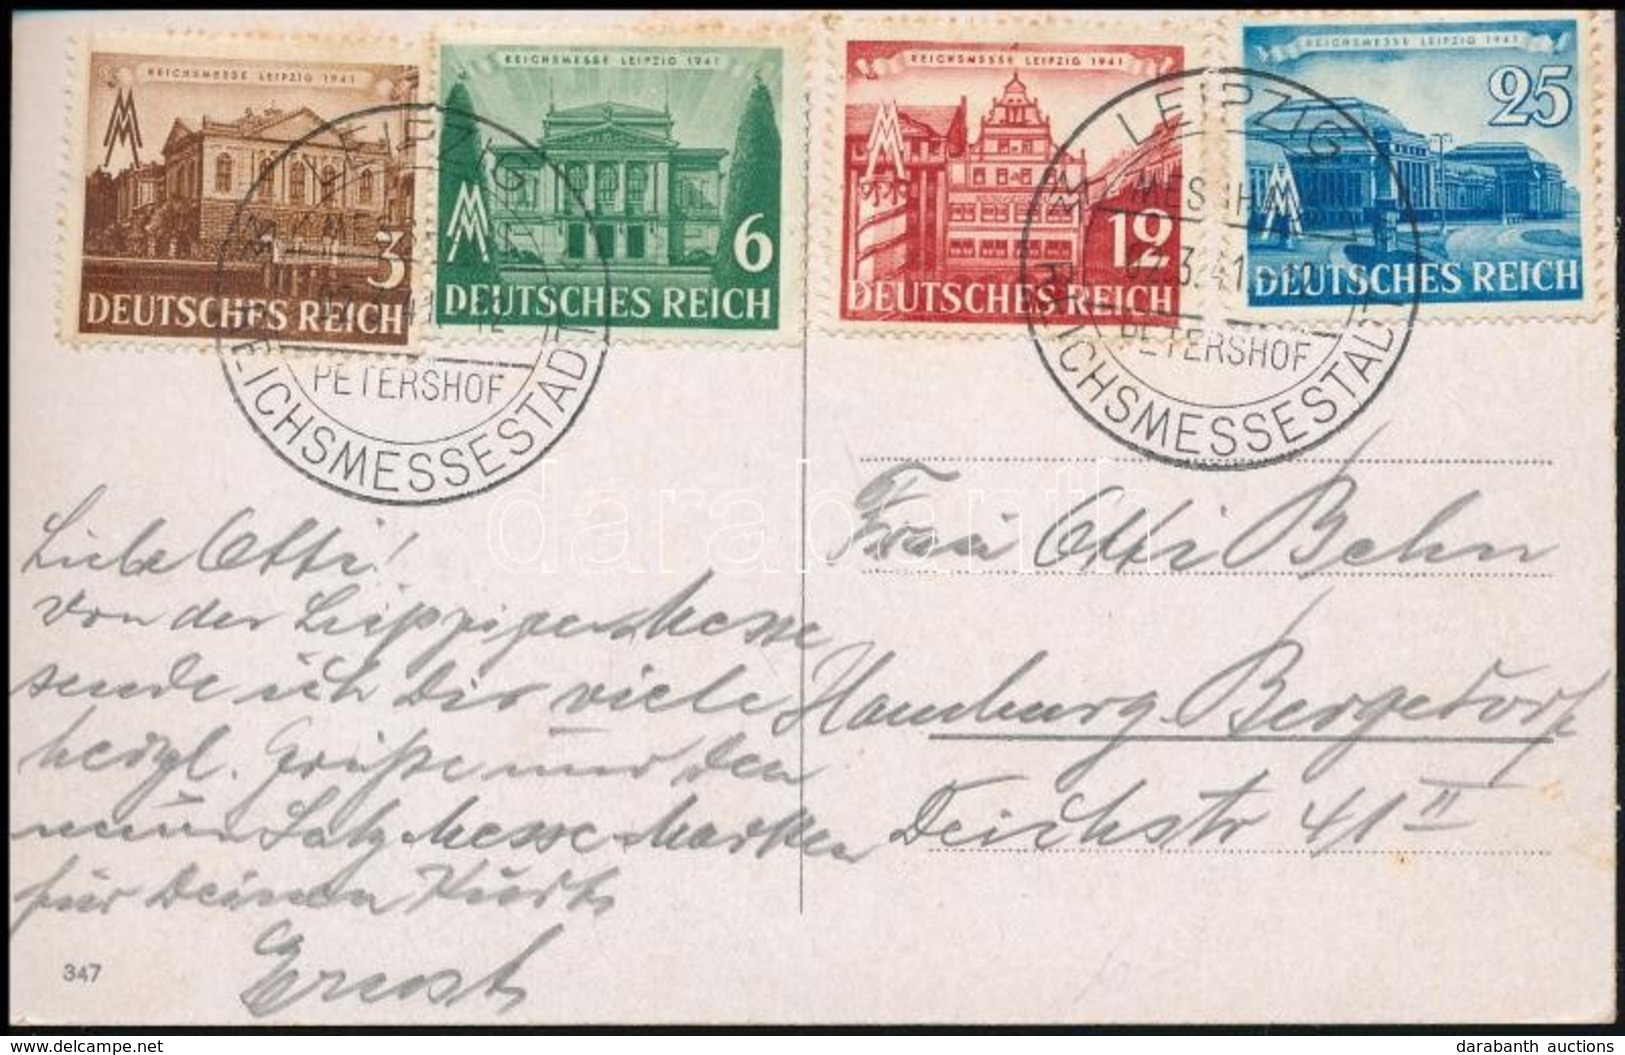 REICHSMESSE LEIPZIG 1941
3
DEUTSCHES REICH
REICHSMESSE LEIPZIG 1941
6
DEUTSCHES REICH
REICHSMESSE LEIPZIG 1941
12
DEUTSCHES REICH
REICHSMESSE LEIPZIG 1941
25
DEUTSCHES REICH
LEIPZIG
PETERSHOF
REICHSMESSESTADT
LEIPZIG
3.41
PETERSHOF
REICHSMESSESTADT
darabanth
Liebe Otti!
Von der Leipziger Messe
sende ich Dir viele
herzl. Grüße und den
neuen Satz Messe Marken
für Deinen
Ernst
347
Frau Otti Behn
Hamburg-Bergedorf
Deichstr 41 II
delcampe.net
darabanth auctions